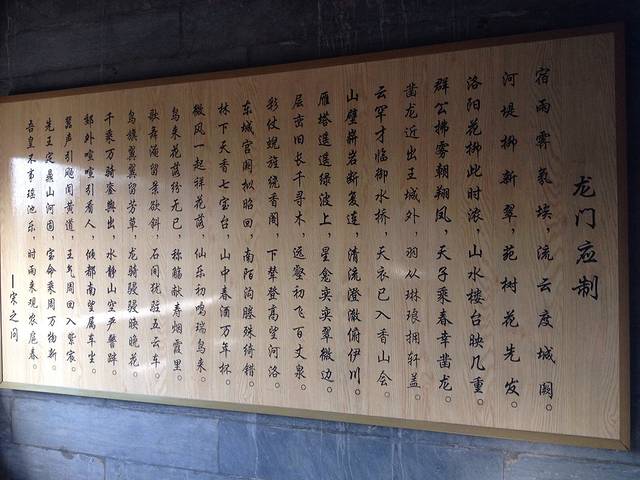 龙门应制
宿雨霁氛埃，流云度城阙。
河堤柳新翠，苑树花先发。
洛阳花柳此时浓，山水楼台映几重。
群公拂雾朝翔凤，天子乘春幸凿龙。
凿龙近出王城外，羽从琳琅拥轩盖。
云罕才临御水桥，天衣已入香山会。
山壁崭岩断复连，清流澄澈俯伊川。
雁塔遥遥绿波上，星龛奕奕翠微边。
层峦旧长千寻木，远壑初飞百丈泉。
彩仗蜺旌绕香阁，下辇登高望河洛。
东城宫阙拟昭回，南陌沟塍殊绮错。
林下天香七宝台，山中春酒万年杯。
微风一起祥花落，仙乐初鸣瑞鸟来。
鸟来花落纷无已，称觞献寿烟霞里。
歌舞淹留景欲斜，石间犹驻五云车。
鸟旗翼翼留芳草，龙骑骎骎映晚花。
千乘万骑銮舆出，水静山空严警跸。
郊外喧喧引看人，倾都南望属车尘。
嚣声引飏闻黄道，王气周回入紫宸。
先王定鼎山河固，宝命乘周万物新。
吾皇不事瑶池乐，时雨来观农扈春。
—宋之问